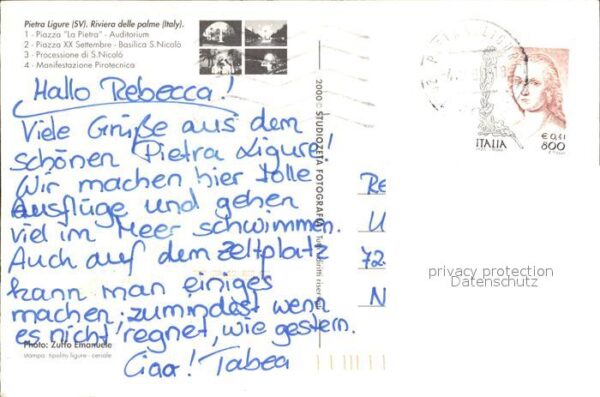 Pietra Ligure (SV). Riviera delle palme (Italy).
1 - Piazza "La Pietra" - Auditorium
2 - Piazza XX Settembre - Basilica S.Nicolò
3 - Processione di S.Nicolò
4 - Manifestazione Pirotecnica
Hallo Rebecca!
Viele Grüße aus dem
schönen Pietra Ligure!
Wir machen hier tolle
Ausflüge und gehen
viel im Meer schwimmen.
Auch auf dem Zeltplatz
kann man einiges
machen, zumindest wenn
es nicht regnet, wie gestern.
Ciao! Tabea
Photo: Zuffo Emanuele
stampa: tipolito ligure - ceriale
2000 © STUDIOZETA FOTOGRAFIA Tutti i diritti riservati
€ 0,41
ITALIA 800
Re
U
72
N
privacy protection
Datenschutz